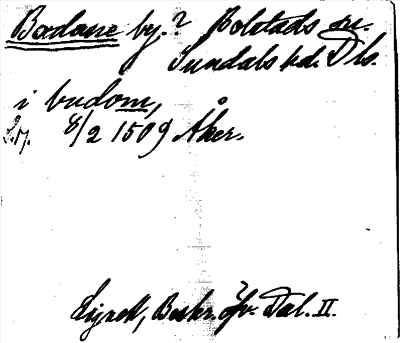 Bodane by.? Bolstads sn.
Sundals hd. Dls.
i budom,
8/2 1509 Åker.
Lignell, Beskr. öfv. Dal. II.